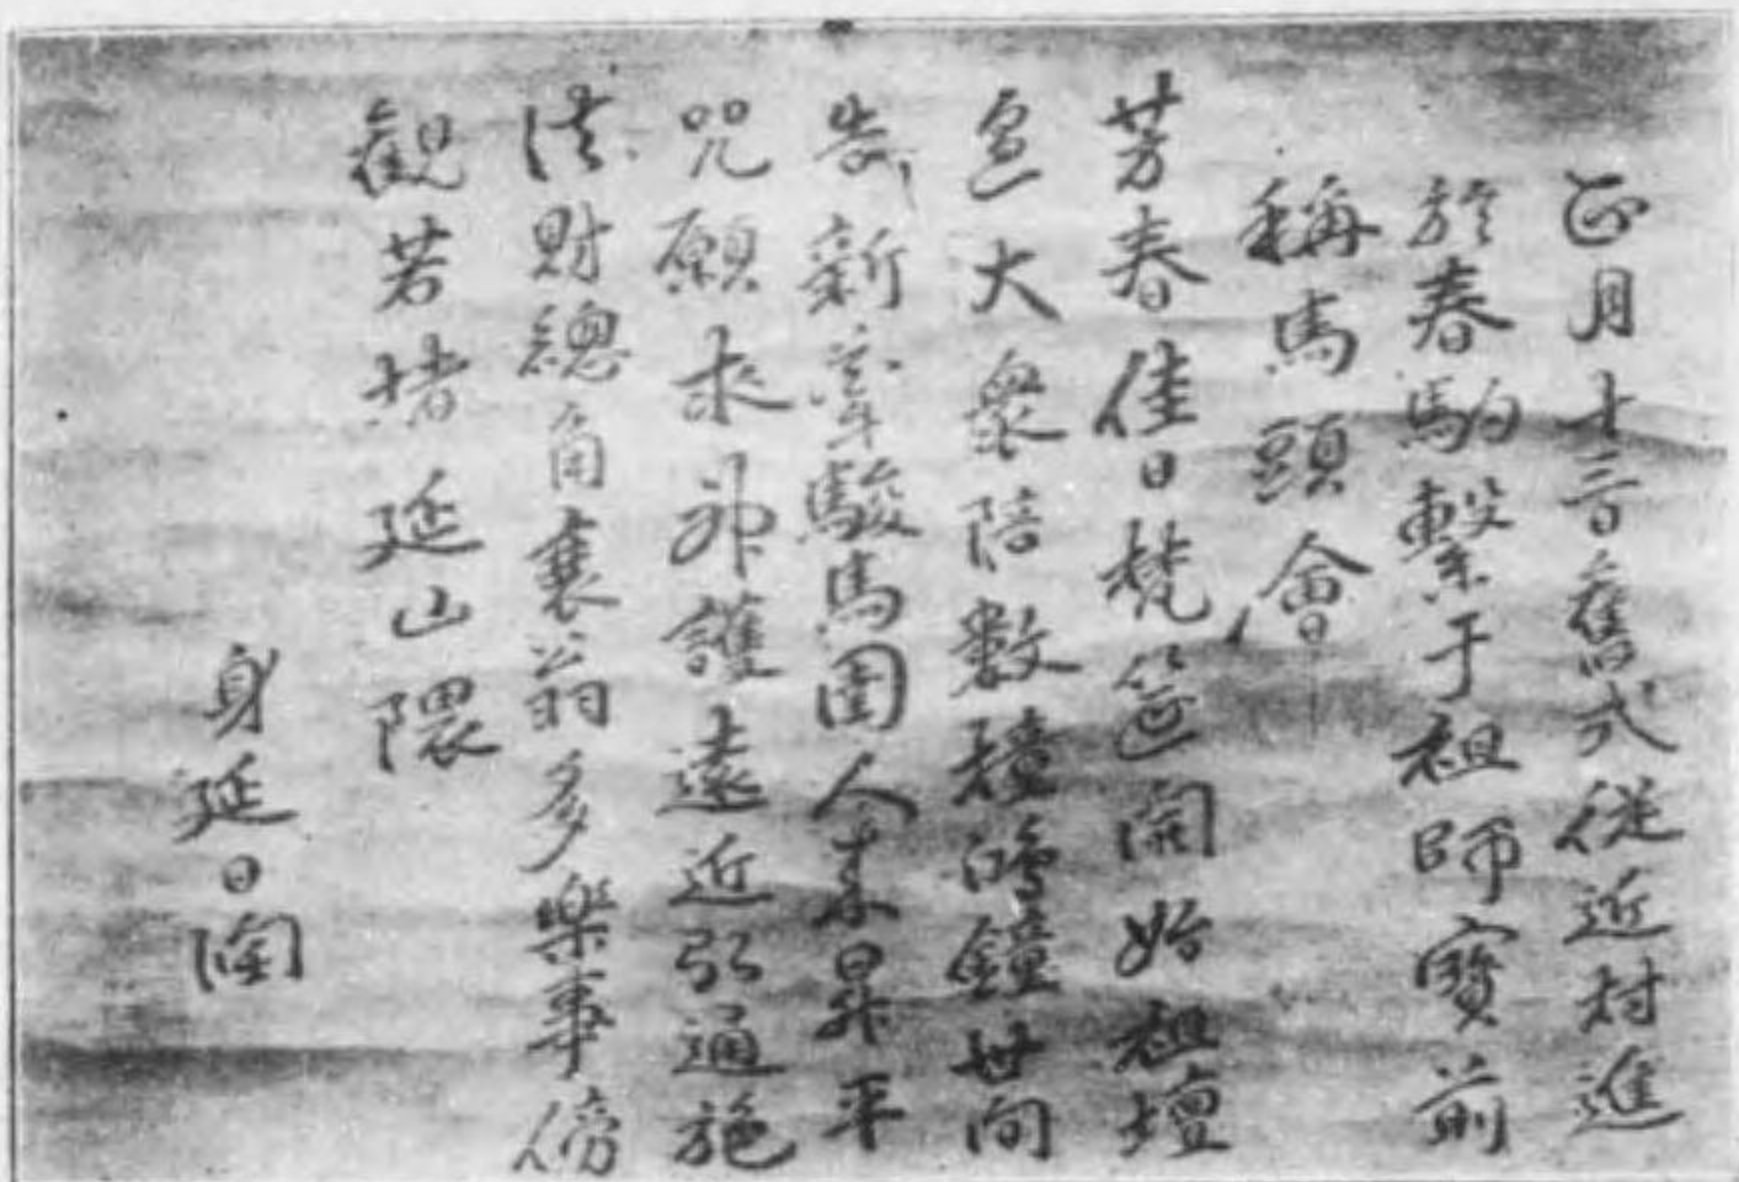 正月十三日舊式從近村進
於春駒繫于祖師寶前
稱馬頭會
芳春佳日梵筵開始祖壇
邊大衆陪數種鳴鐘世間
新蒙駿馬圉人来昇平
咒願求邪護遠近弘通施
法財總角裏翁多樂事傍
觀若堵延山隈
身延日